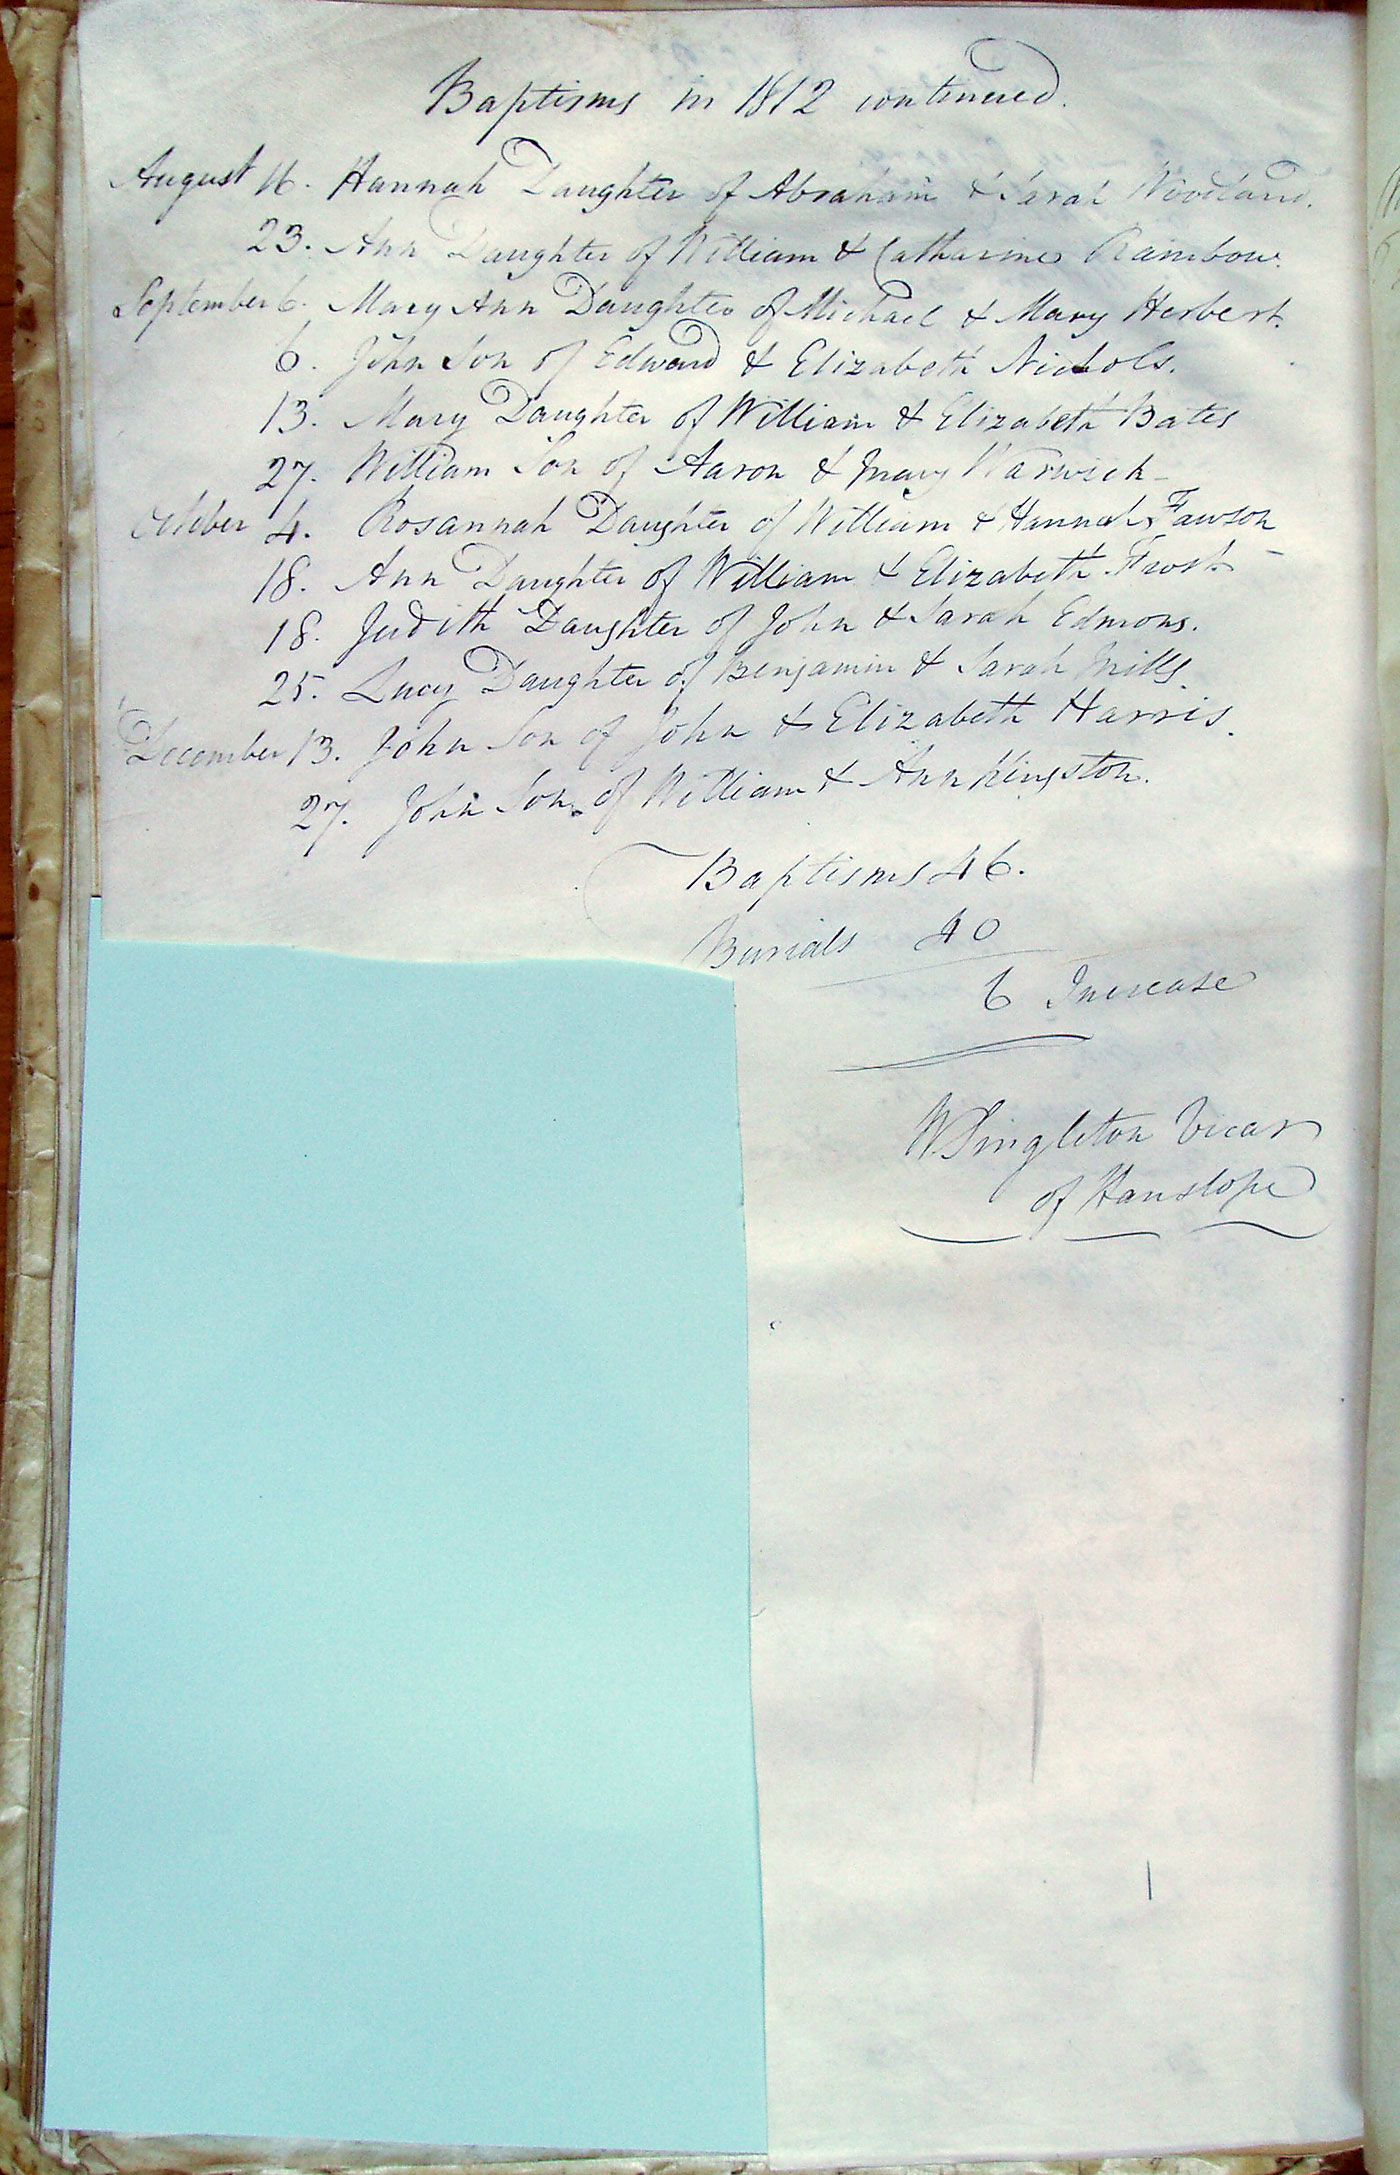 Baptisms in 1812 continued.
August 16. Hannah Daughter of Abraham & Sarah Wooland.
23. Ann Daughter of William & Catharine Rainbow.
September 6. Mary Ann Daughter of Michael & Mary Herbert.
6. John Son of Edward & Elizabeth Nichols.
13. Mary Daughter of William & Elizabeth Bates
27. William Son of Aaron & Mary Warwick
October 4. Rosannah Daughter of William & Hannah Fawson
18. Ann Daughter of William & Elizabeth Frost
18. Judith Daughter of John & Sarah Edmons.
25. Lucy Daughter of Benjamin & Sarah Mills.
December 13. John Son of John & Elizabeth Harris.
27. John Son of William & Ann Kingston.
Baptisms 46.
Burials 40
6 Increase
W Singleton Vicar
of Hanslope